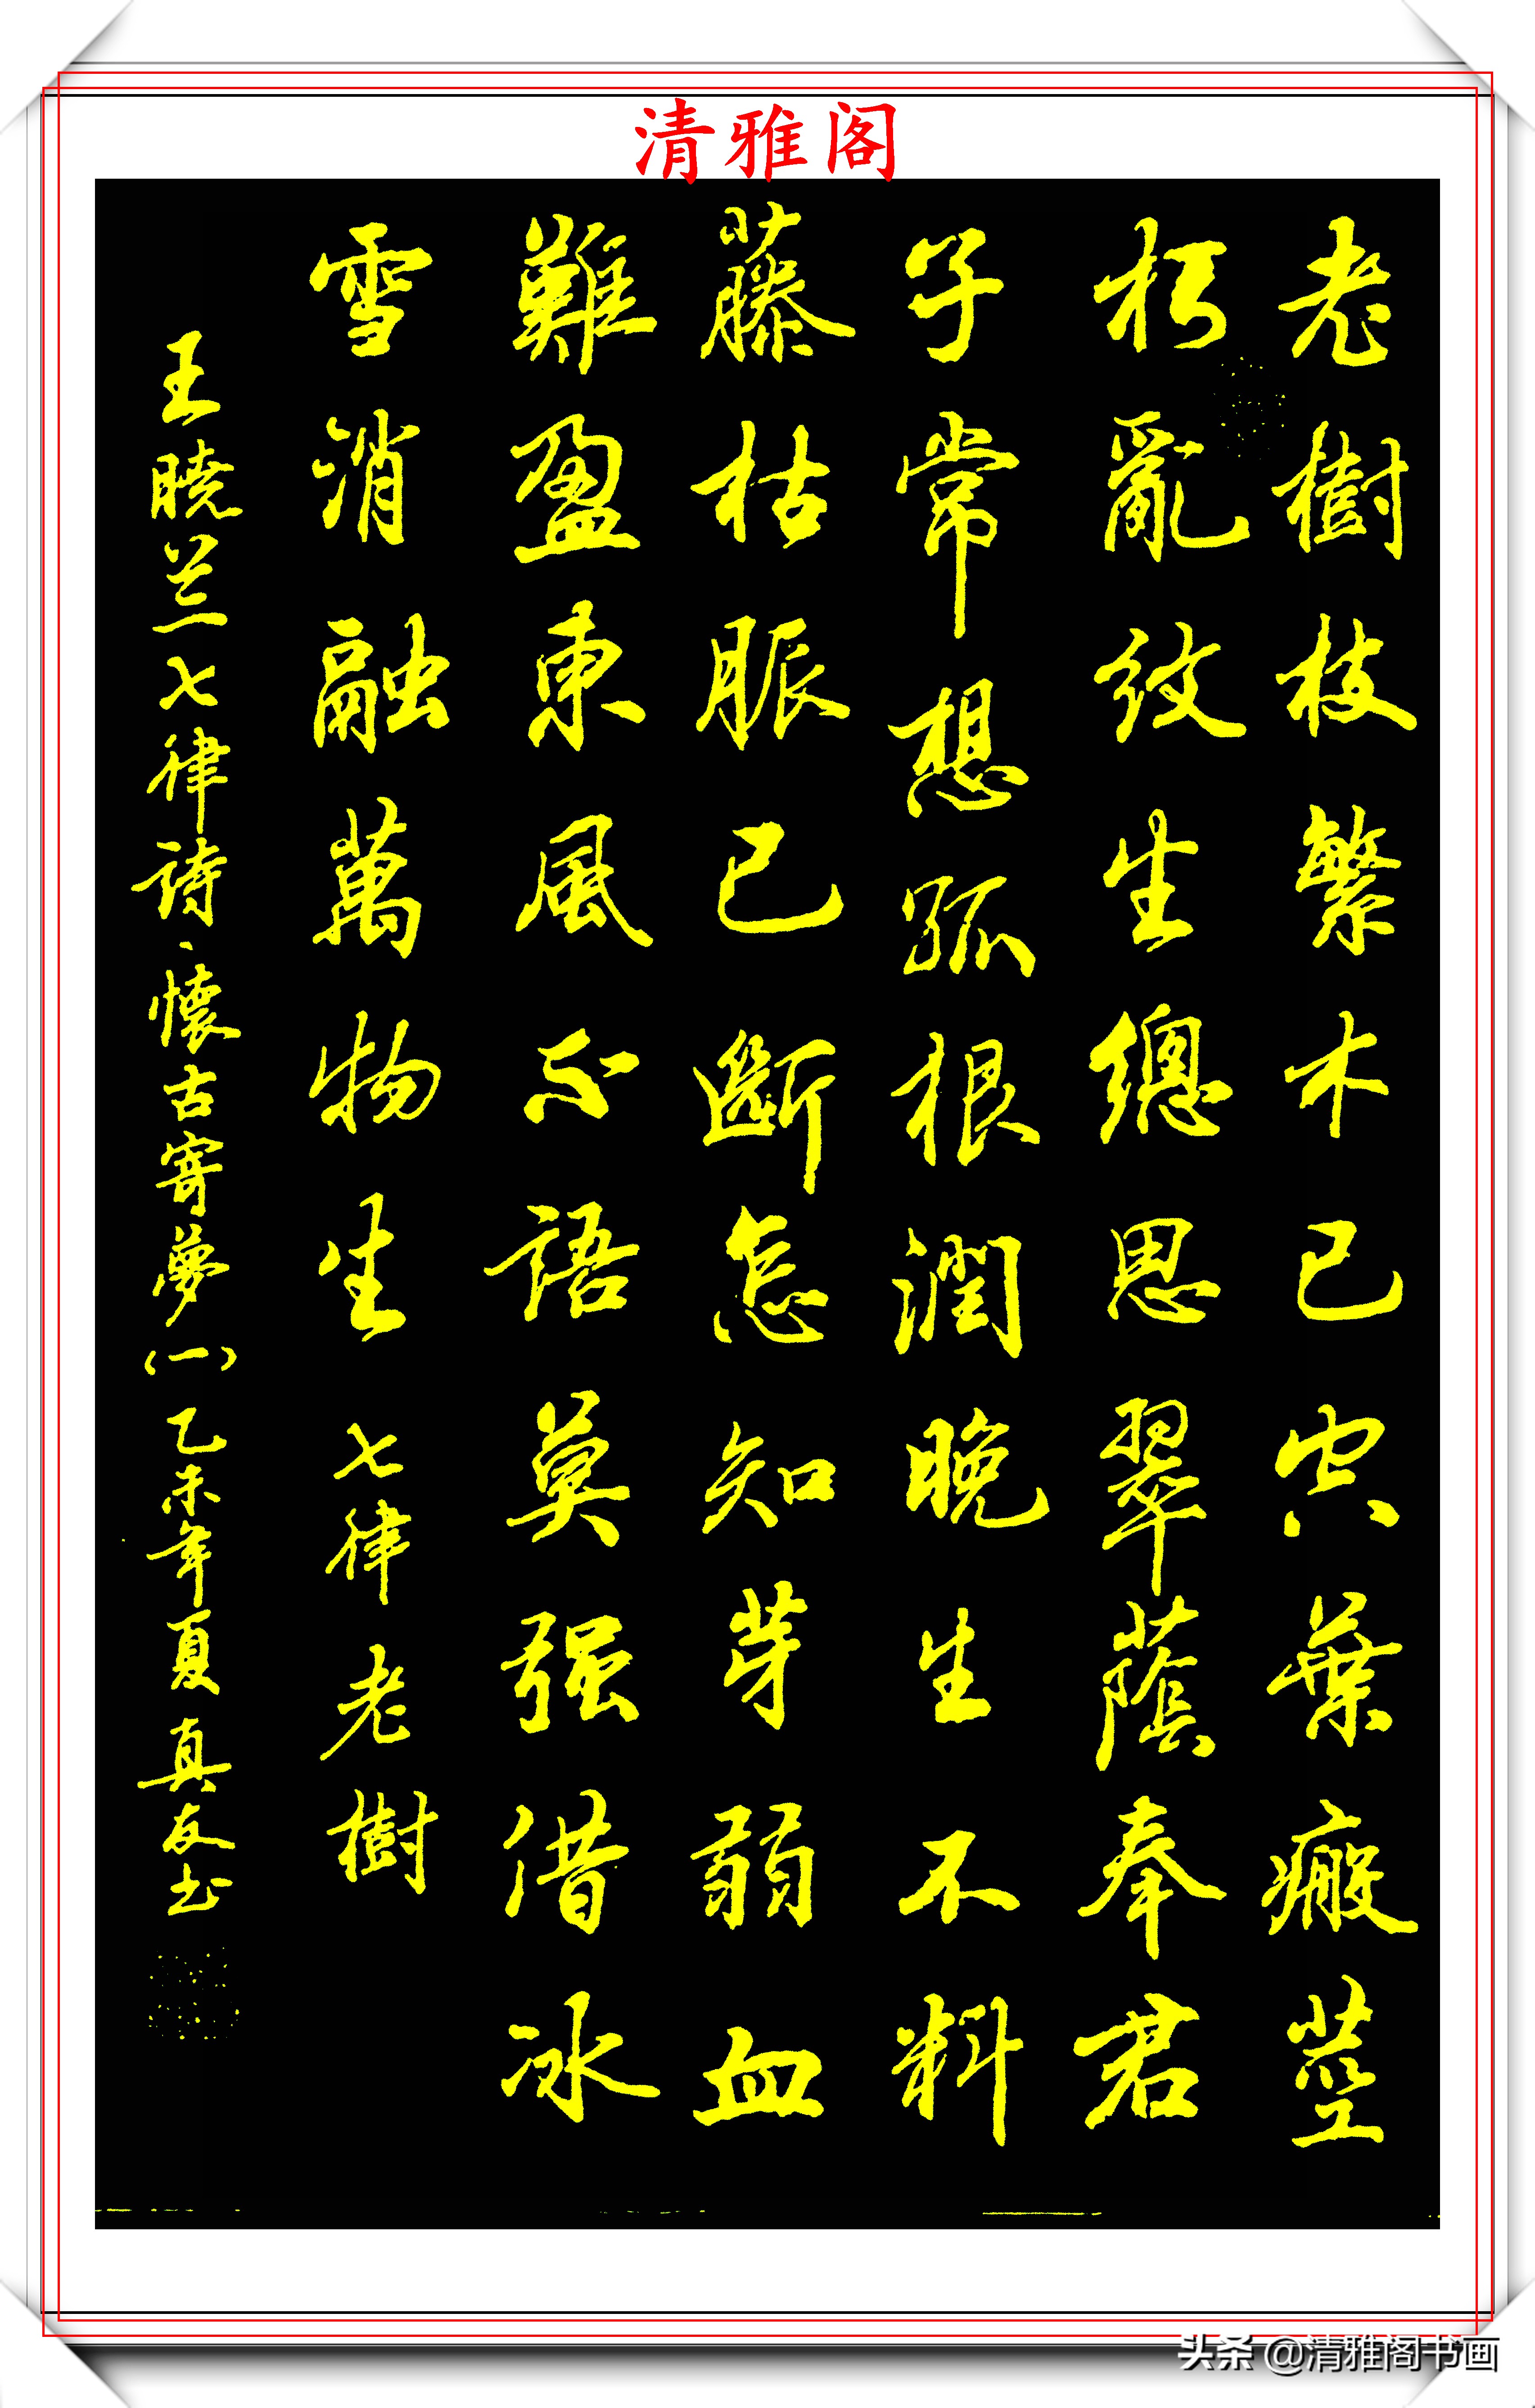 清雅阁
老樹枝繁木已穴葉瘢莖
朽亂纹生總思翠蔭奉君
子常想孤根潤晚生不料
藤枯脈已斷怎知芽弱血
難盈東風不語莫强借冰
雪消融萬物生七律老樹
王曉兰七律詩、懷古寄夢(一)乙未年夏真友书
头条 @清雅阁书画